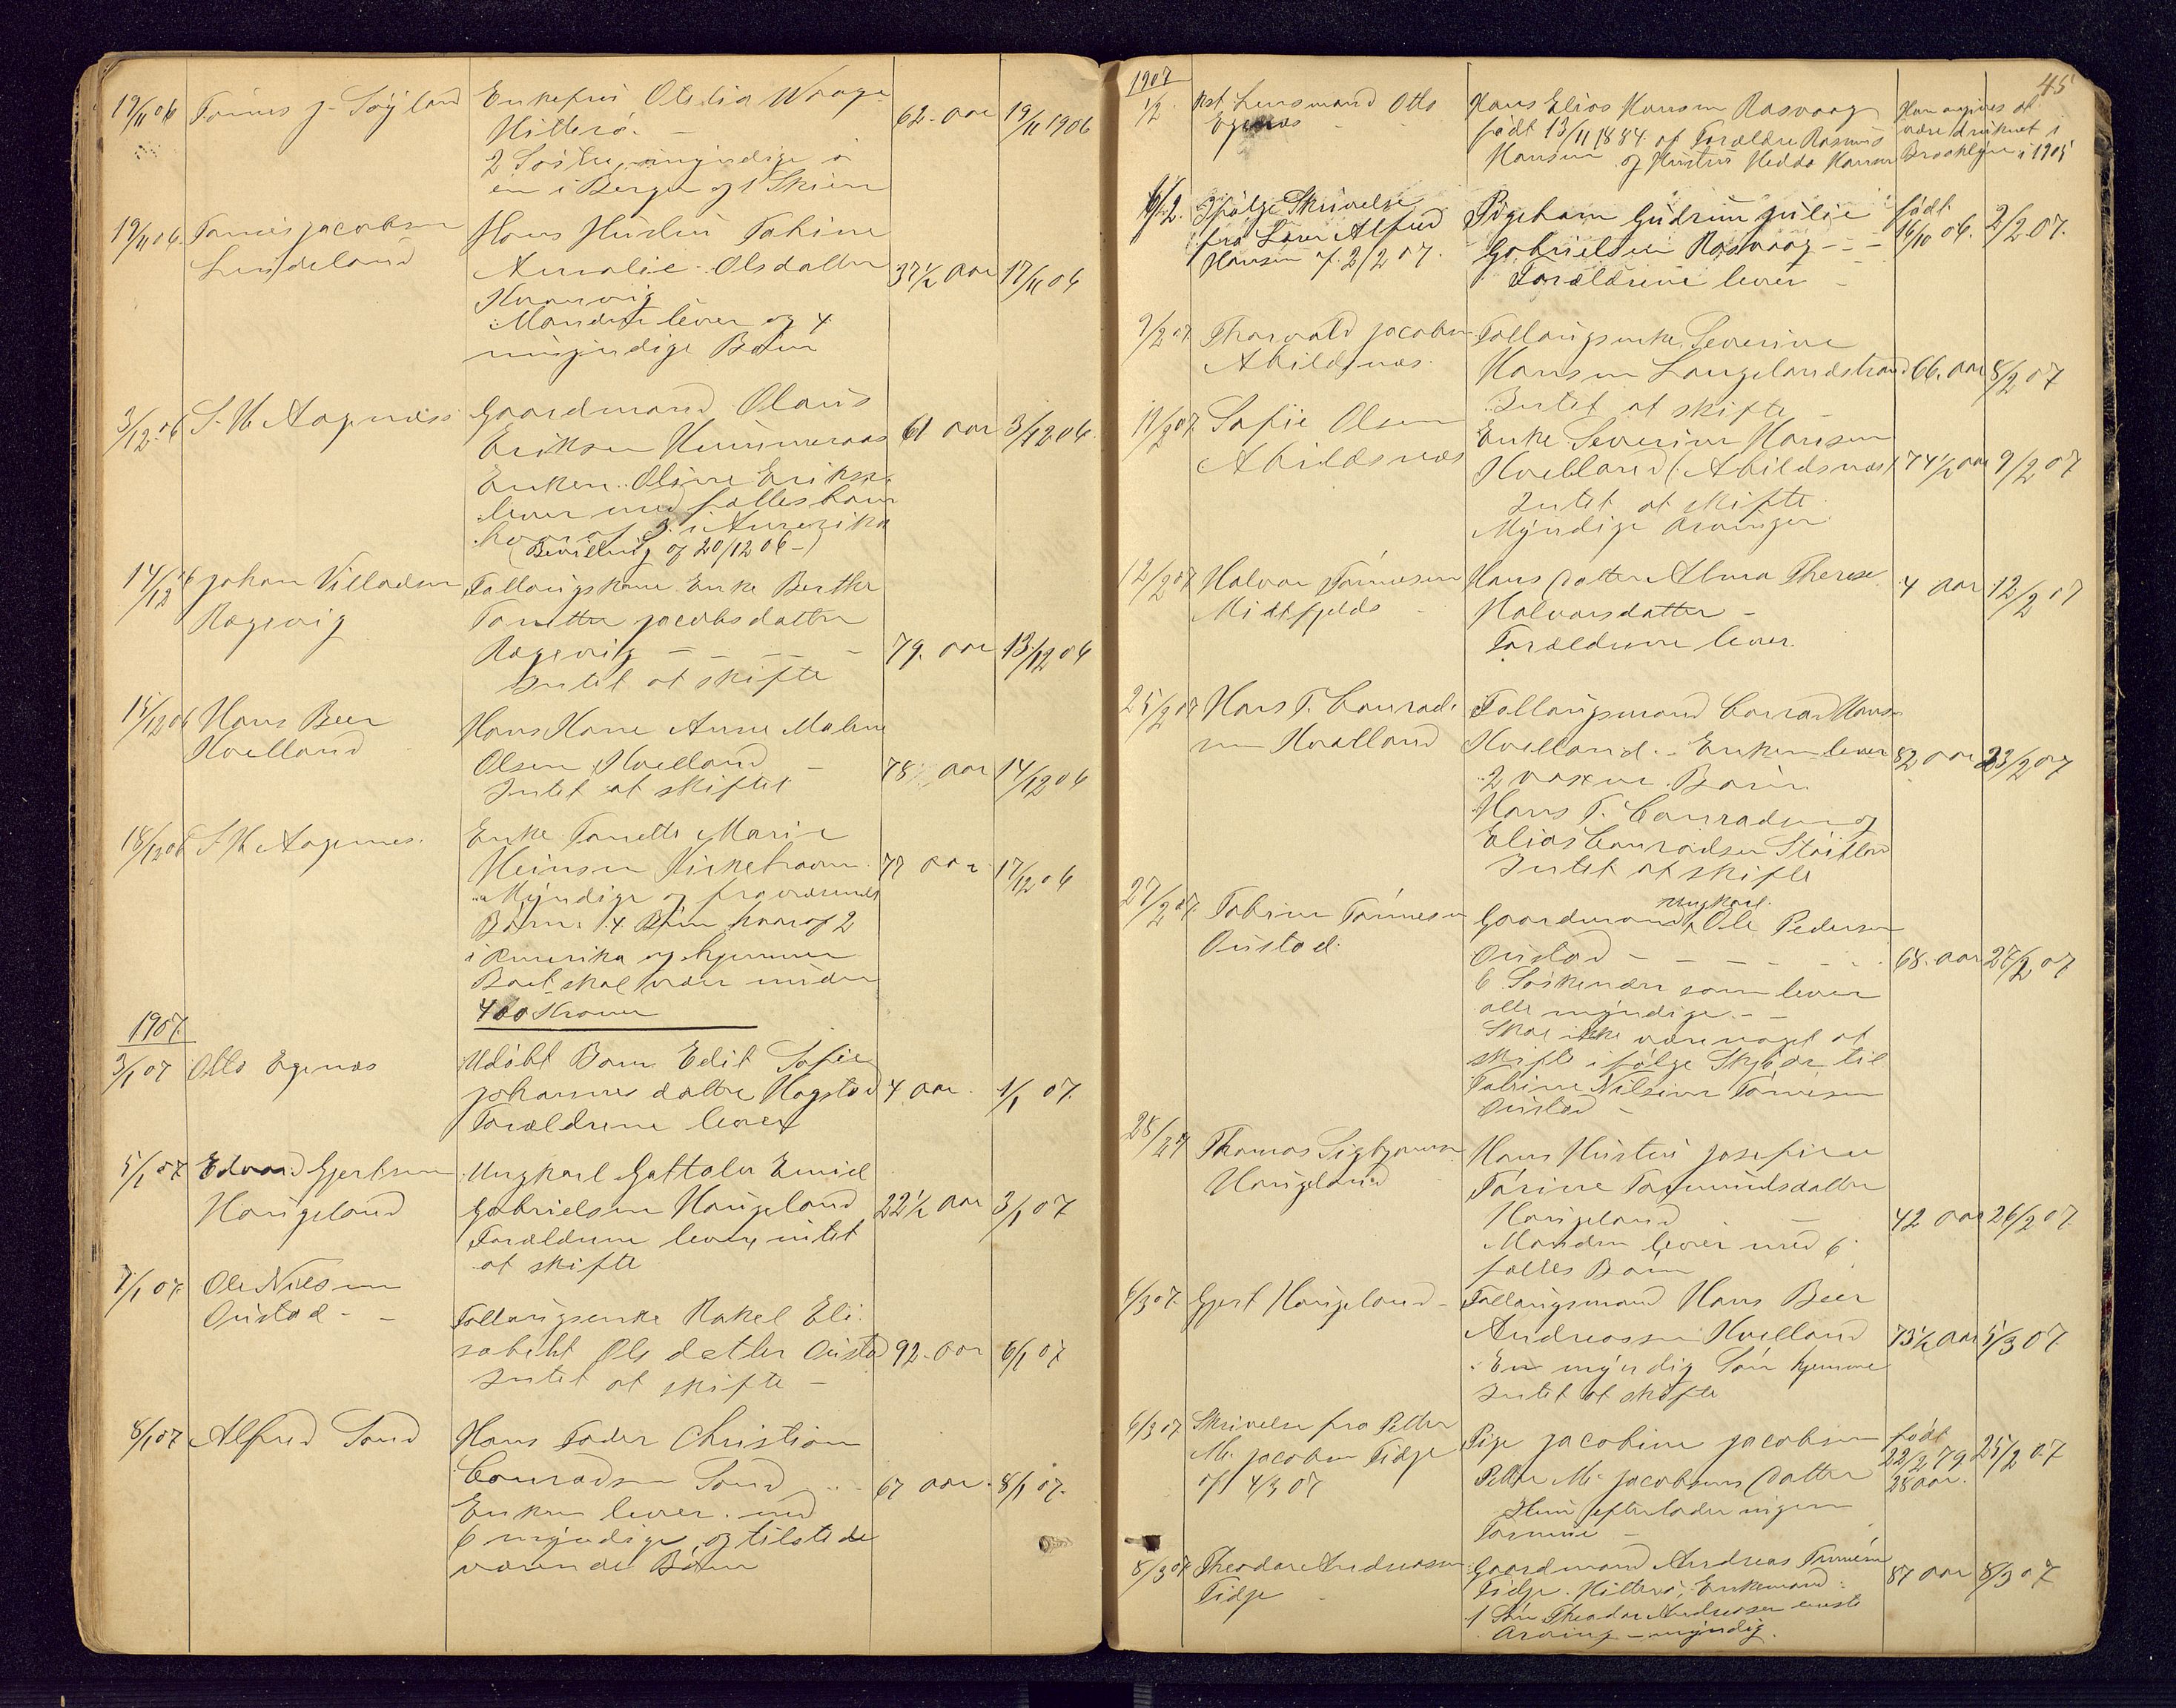 19/11 06 Tønnes J. Søyland Enkefru Otilia Waage 62 aar 19/11 1906
Hitterø. —
2 Søstre, myndige
en i Bergen og 1 i Skien
19/11 06 Tønnes Jacobsen Hans Hustru Tobine
Lindeland Amalie Olsdatter 37½ aar 17/11 06
Manden lever og 4
umyndige Børn
3/12 06 S. H. Aagenæss Gaardmand Olaus
Eriksen Hummeraas 61 aar 3/12 06.
Enken Oline Eriksen
lever med fælles barn
hvoraf 3 i Amerika
(Bevilling af 20/12 06 —)
14/12 06 Johan Villadsen Fattiglems Enke Berthe
Rægevig Tonette Jacobsdatter
Rægevig — — — — 79. aar 13/12 06
Intet at skifte
15/12 06 Hans Beer Hans Kone Anne Malene
Hvelland Olsen Hvelland — 78 aar 14/12 06
Intet at skifte
18/12 06 S H Aagenes. Enke Tonette Marie
Heinsen Kirkehavn 77 aar 17/12 06
Myndige og fraværende
Børn: 4 Børn hvoraf 2
i Amerika og hjemme
Boet skal være under
400 Kroner
1907.
3/1 07 Otto Egenæs Udøbt Barn Edit Sofie
Johannes datter Hogstad 4 aar. 1/1 07.
Forældrene lever
5/1 07 Edvard Gjertsen Ungkarl Emil
Haugeland Gabrielsen Haugeland 22½ aar 3/1 07
Forældrene lever, intet
at skifte
7/1 07 Ole Nilsen
Oustad - - Rakel Eli
sabeht Ols datter Oustad 92. aar 6/1 07
Intet at skifte —
8/1 07 Alfred Sand Hans Fader Christian
Conradsen Sand 67 aar. 8/1 07.
Enken lever med
6 myndige og tilstede
værende Børn
45
1907
1/2. Kst. Lensmand Otto Hans Elias Hansen Rasvaag Han angives at
Egenæs født 13/11 1884 af Forældre Rasmus være druknet i
Hansen og Hustru Hedda Hansen Brooklyn i 1905
6/2. Ifølge Skrivelse Pigebarn Gudrun Julie født
fra Lærer Alfred Gabrielsen Rasvaag — — — 16/10 06. 2/2 07.
Hansen af 2/2 07. Forældrene lever —
9/2 07 Thorvald Jacobsen Severine
Abildsnæs. Hansen Langelandstrand 66. aar 8/2 07
Intet at skifte —
11/2 07 Sofie Olsen Enke Severine Hansen
Abildsnæs Hvelland (Abildsnæs) 74½ aar 9/2 07
Intet at skifte
Myndige Arvinger
12/2 07 Halvor Tønnesen Hans Datter Alma Therese 4 aar 12/2 07
Midtfjeldo Halvorsdatter —
Forældrene lever.
25/2 07 Hans T. Conrad- Conrad Hansen
sen Hvelland Hvelland. - Enken lever 82 aar 23/2 07
2 voxne Børn
Hans T. Conradsen og
Elias Conradsen
Intet at skifte
27/2 07 Tobine Tønnesen Ungkarl
Oustad. Gaardmand Ole Pedersen
Oustad — — — — — 68. aar 27/2 07
6 Søskende som lever
alle myndige. — —
Skal ikke være noget at
skifte ifølge Skjøde til
Tobine Nilsine Tønnesen
Oustad —
28/2 07 Thomas Sigbjørnsen Hans Hustru Josefine
Haugeland Torine Tommundsdatter
Haugeland — 42 aar 26/2 07
Manden lever med 6
fælles Børn
6/3 07. Gjert Haugeland — Hans Beer
Andreassen Hvelland 73½ aar 5/3 07
En myndig Søn hjemme
Intet at skifte
6/3 07 Skrivelse fra Petter Pige Jacobine Jacobsen født
M. Jacobsen Tidje Petter M. Jacobsens Datter 22/2 79. 25/2 07
af 4/3 07 28 aar.
Hun efterlader ingen
Formue —
8/3 07 Theodor Andreassen Gaardmand Andreas Tønnesen
Tidje Tidje. Hitterø, Enkemand 87 aar 8/3 07
1 Søn Theodor Andreassen eneste
Arving — myndig.